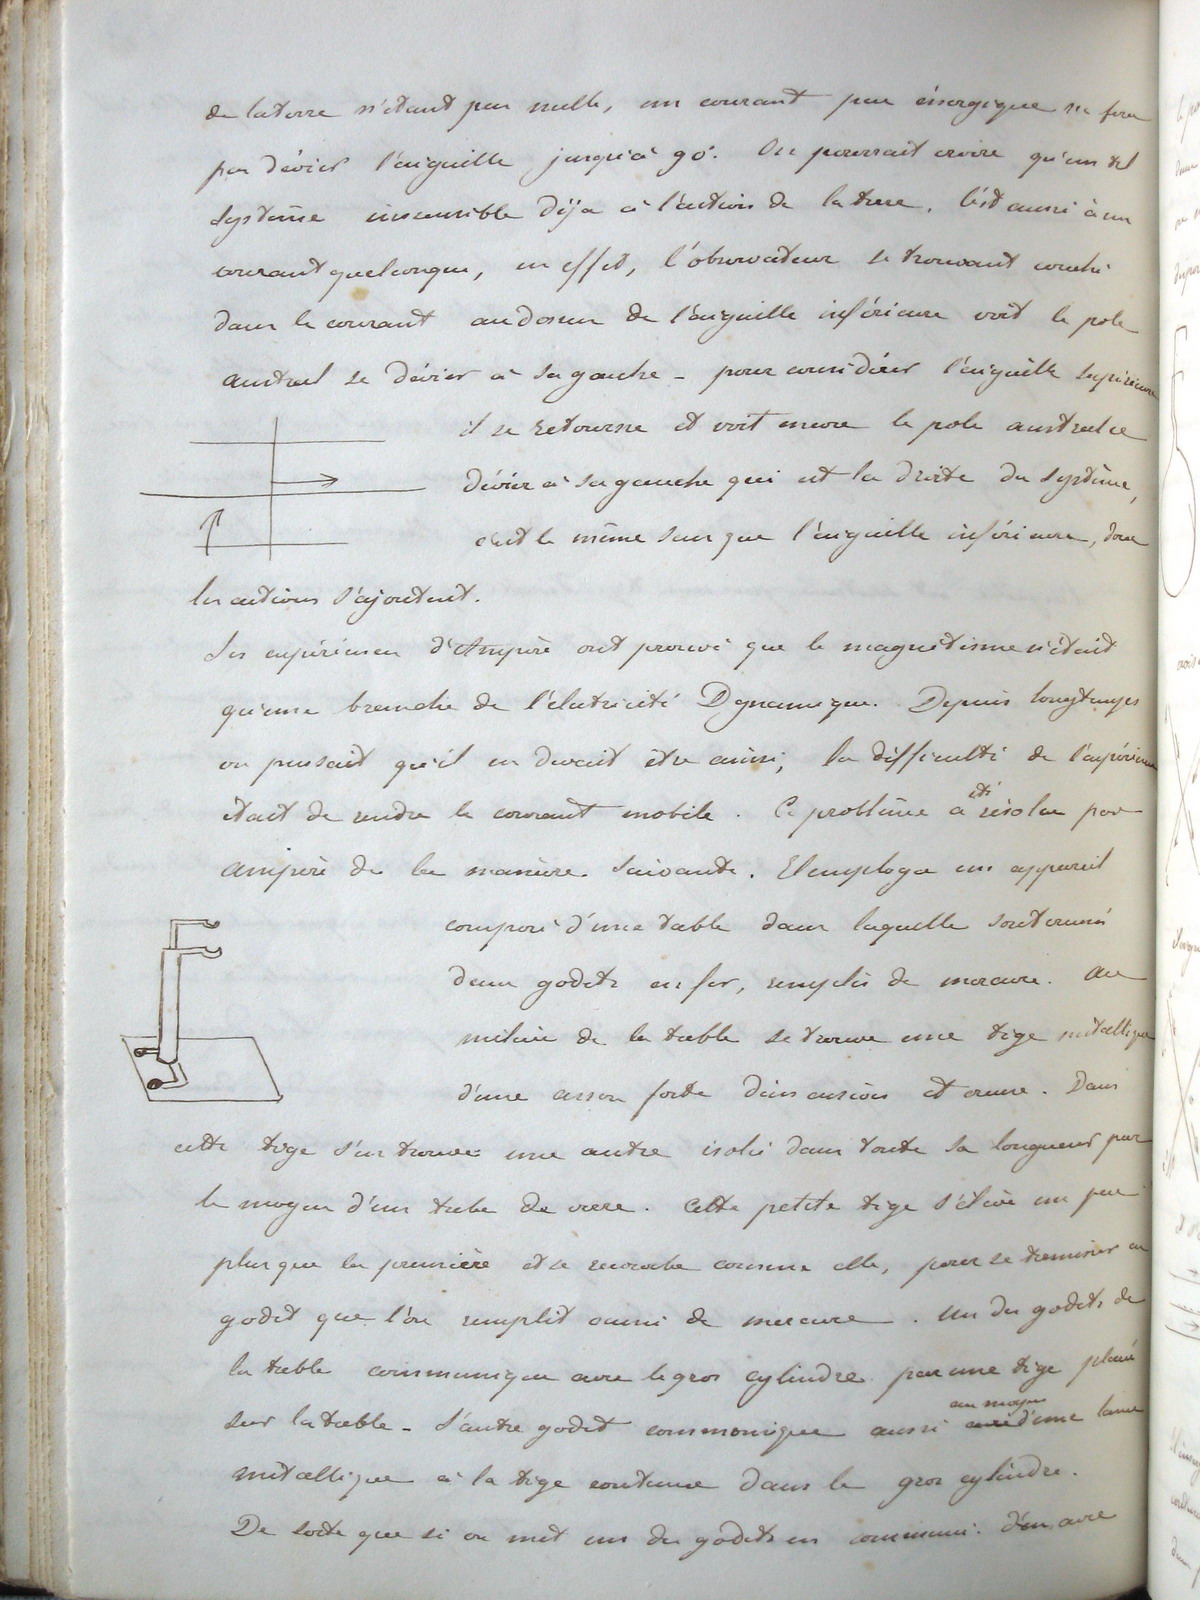 de la terre n'étant pas nulle, un courant peu énergique ne fera
pas dévier l'aiguille jusqu'à 90°. On pourrait croire qu'un tel
système insensible déja à l'action de la terre, l'est aussi à un
courant quelconque, en effet, l'observateur se trouvant couché
dans le courant audessus de l'aiguille inférieure voit le pole
austral se dévier à sa gauche - pour considérer l'aiguille supérieure
il se retourne et voit encore le pole austral se
dévier à sa gauche qui est la droite du système,
c'est le même sens que l'aiguille inférieure, donc
les actions s'ajoutent.
Les expériences d'Ampère ont prouvé que le magnétisme n'était
qu'une branche de l'électricité Dynamique. Depuis longtemps
on pensait qu'il en devait être ainsi, la difficulté de l'expérience
était de rendre le courant mobile. Ce problème a été résolu par
ampère de la manière suivante. Il employa un appareil
composé d'une table dans laquelle sont creusés
deux godets en fer, remplis de mercure. Au
milieu de la table se trouve une tige métallique
d'une assez forte dimension et creuse. Dans
cette tige s'en trouve une autre isolée dans toute sa longueur par
le moyen d'un tube de verre. Cette petite tige s'élève un peu
plus que la première et se recourbe comme elle, pour se terminer en
godet que l'on remplit aussi de mercure. Un des godets de
la table communique avec le gros cylindre par une tige placée
sur la table - L'autre godet communique aussi au moyen d'une lame
métallique à la tige contenue dans le gros cylindre.
De sorte que si on met un des godets en communi. d'on avec